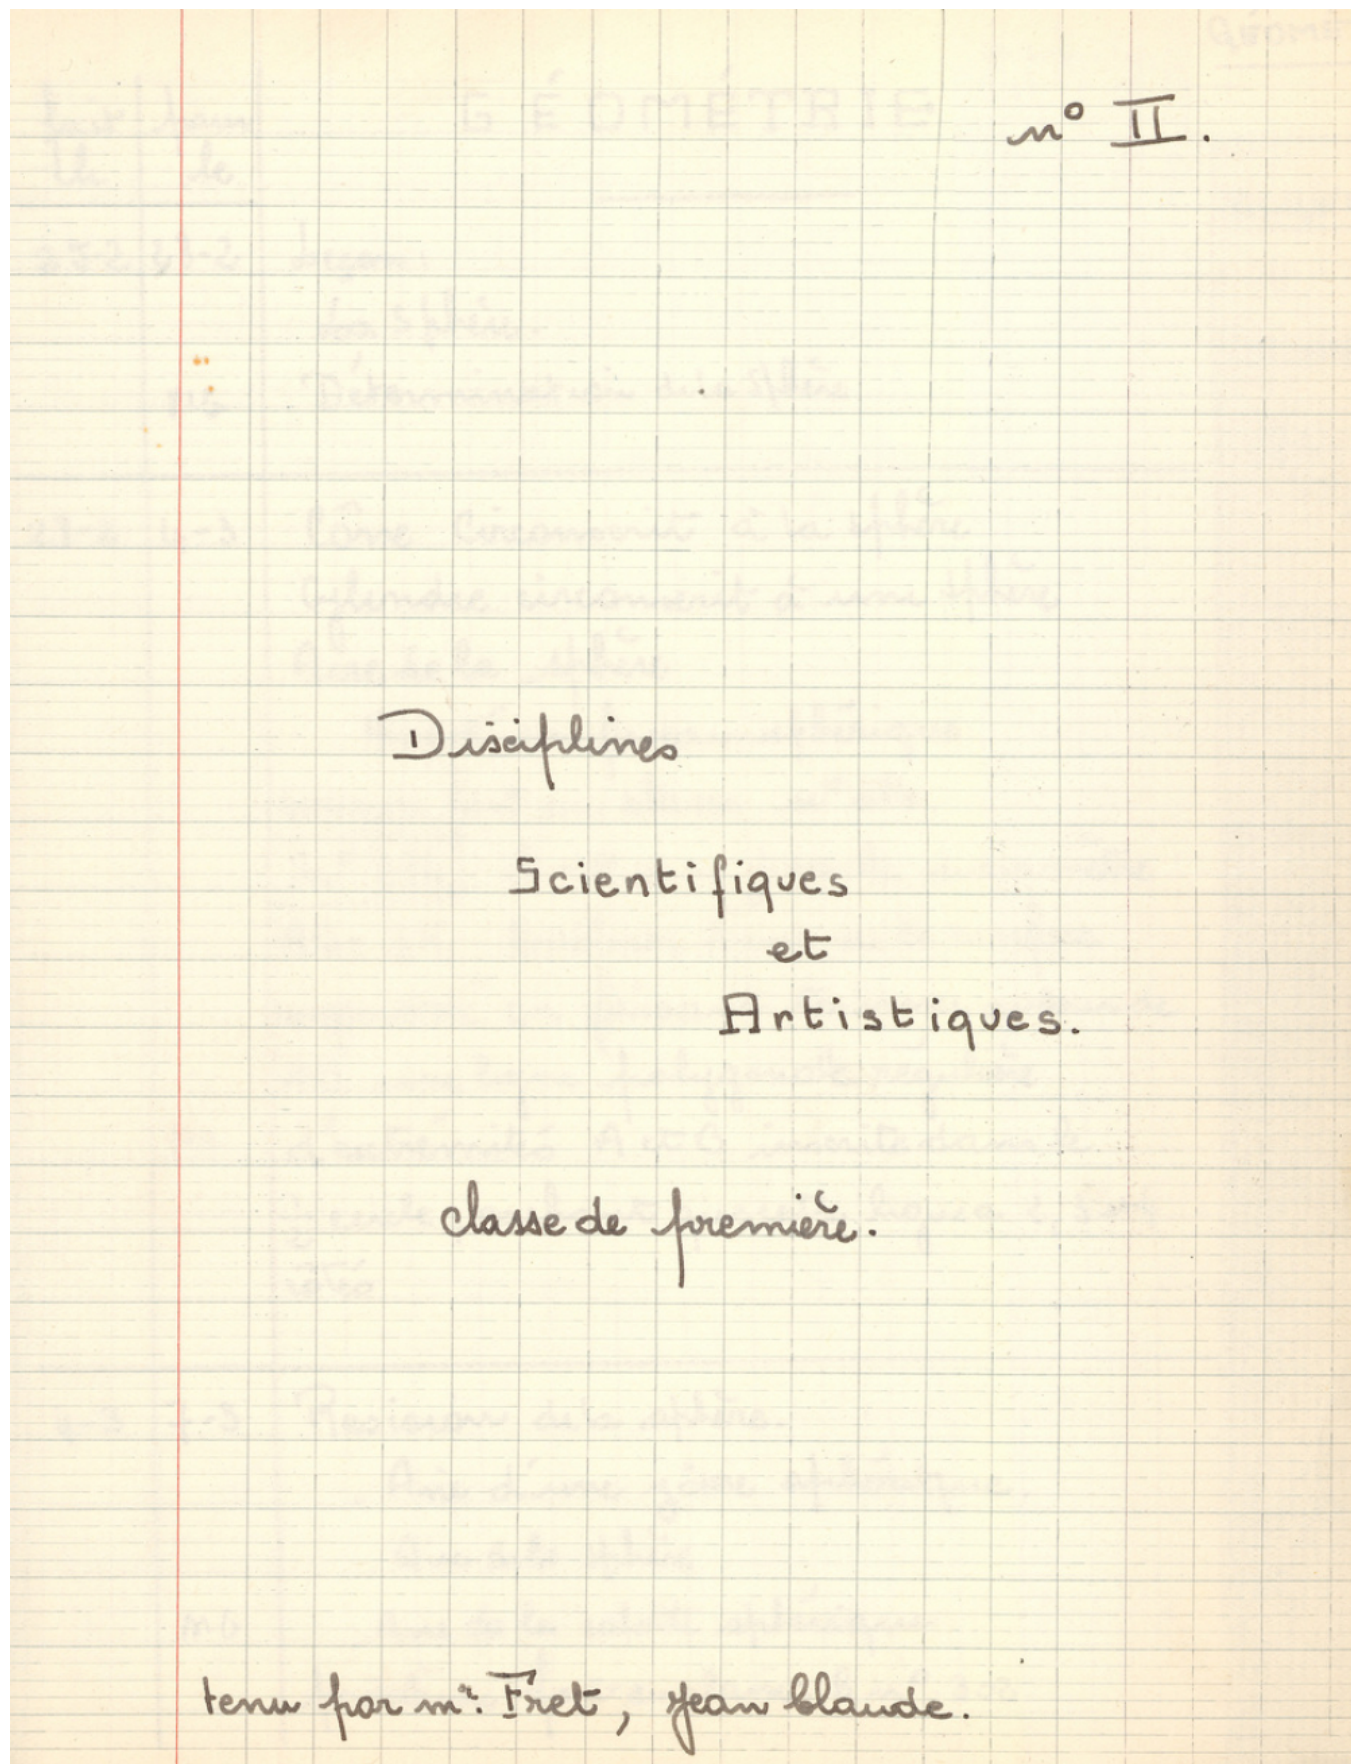 n° II.
Disciplines
Scientifiques
et
Artistiques.
classe de première.
tenu par mr. Fret, Jean Claude.